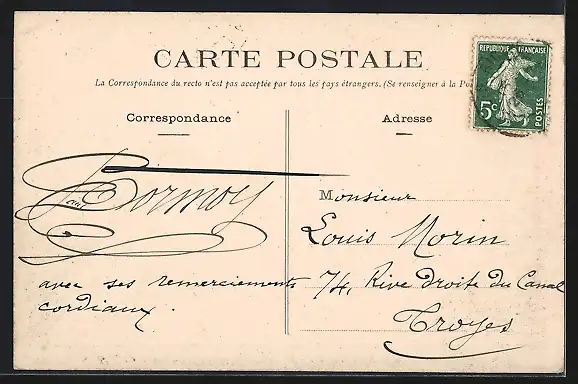 CARTE POSTALE
La Correspondance du recto n'est pas acceptée par tous les pays étrangers. (Se renseigner à la
Correspondance
Adresse
REPUBLIQUE FRANÇAISE
5c
POSTES
Bormoy
avec ses remerciements
cordiaux.
Monsieur
Louis Morin
74, Rive droite du Canal
Troyes